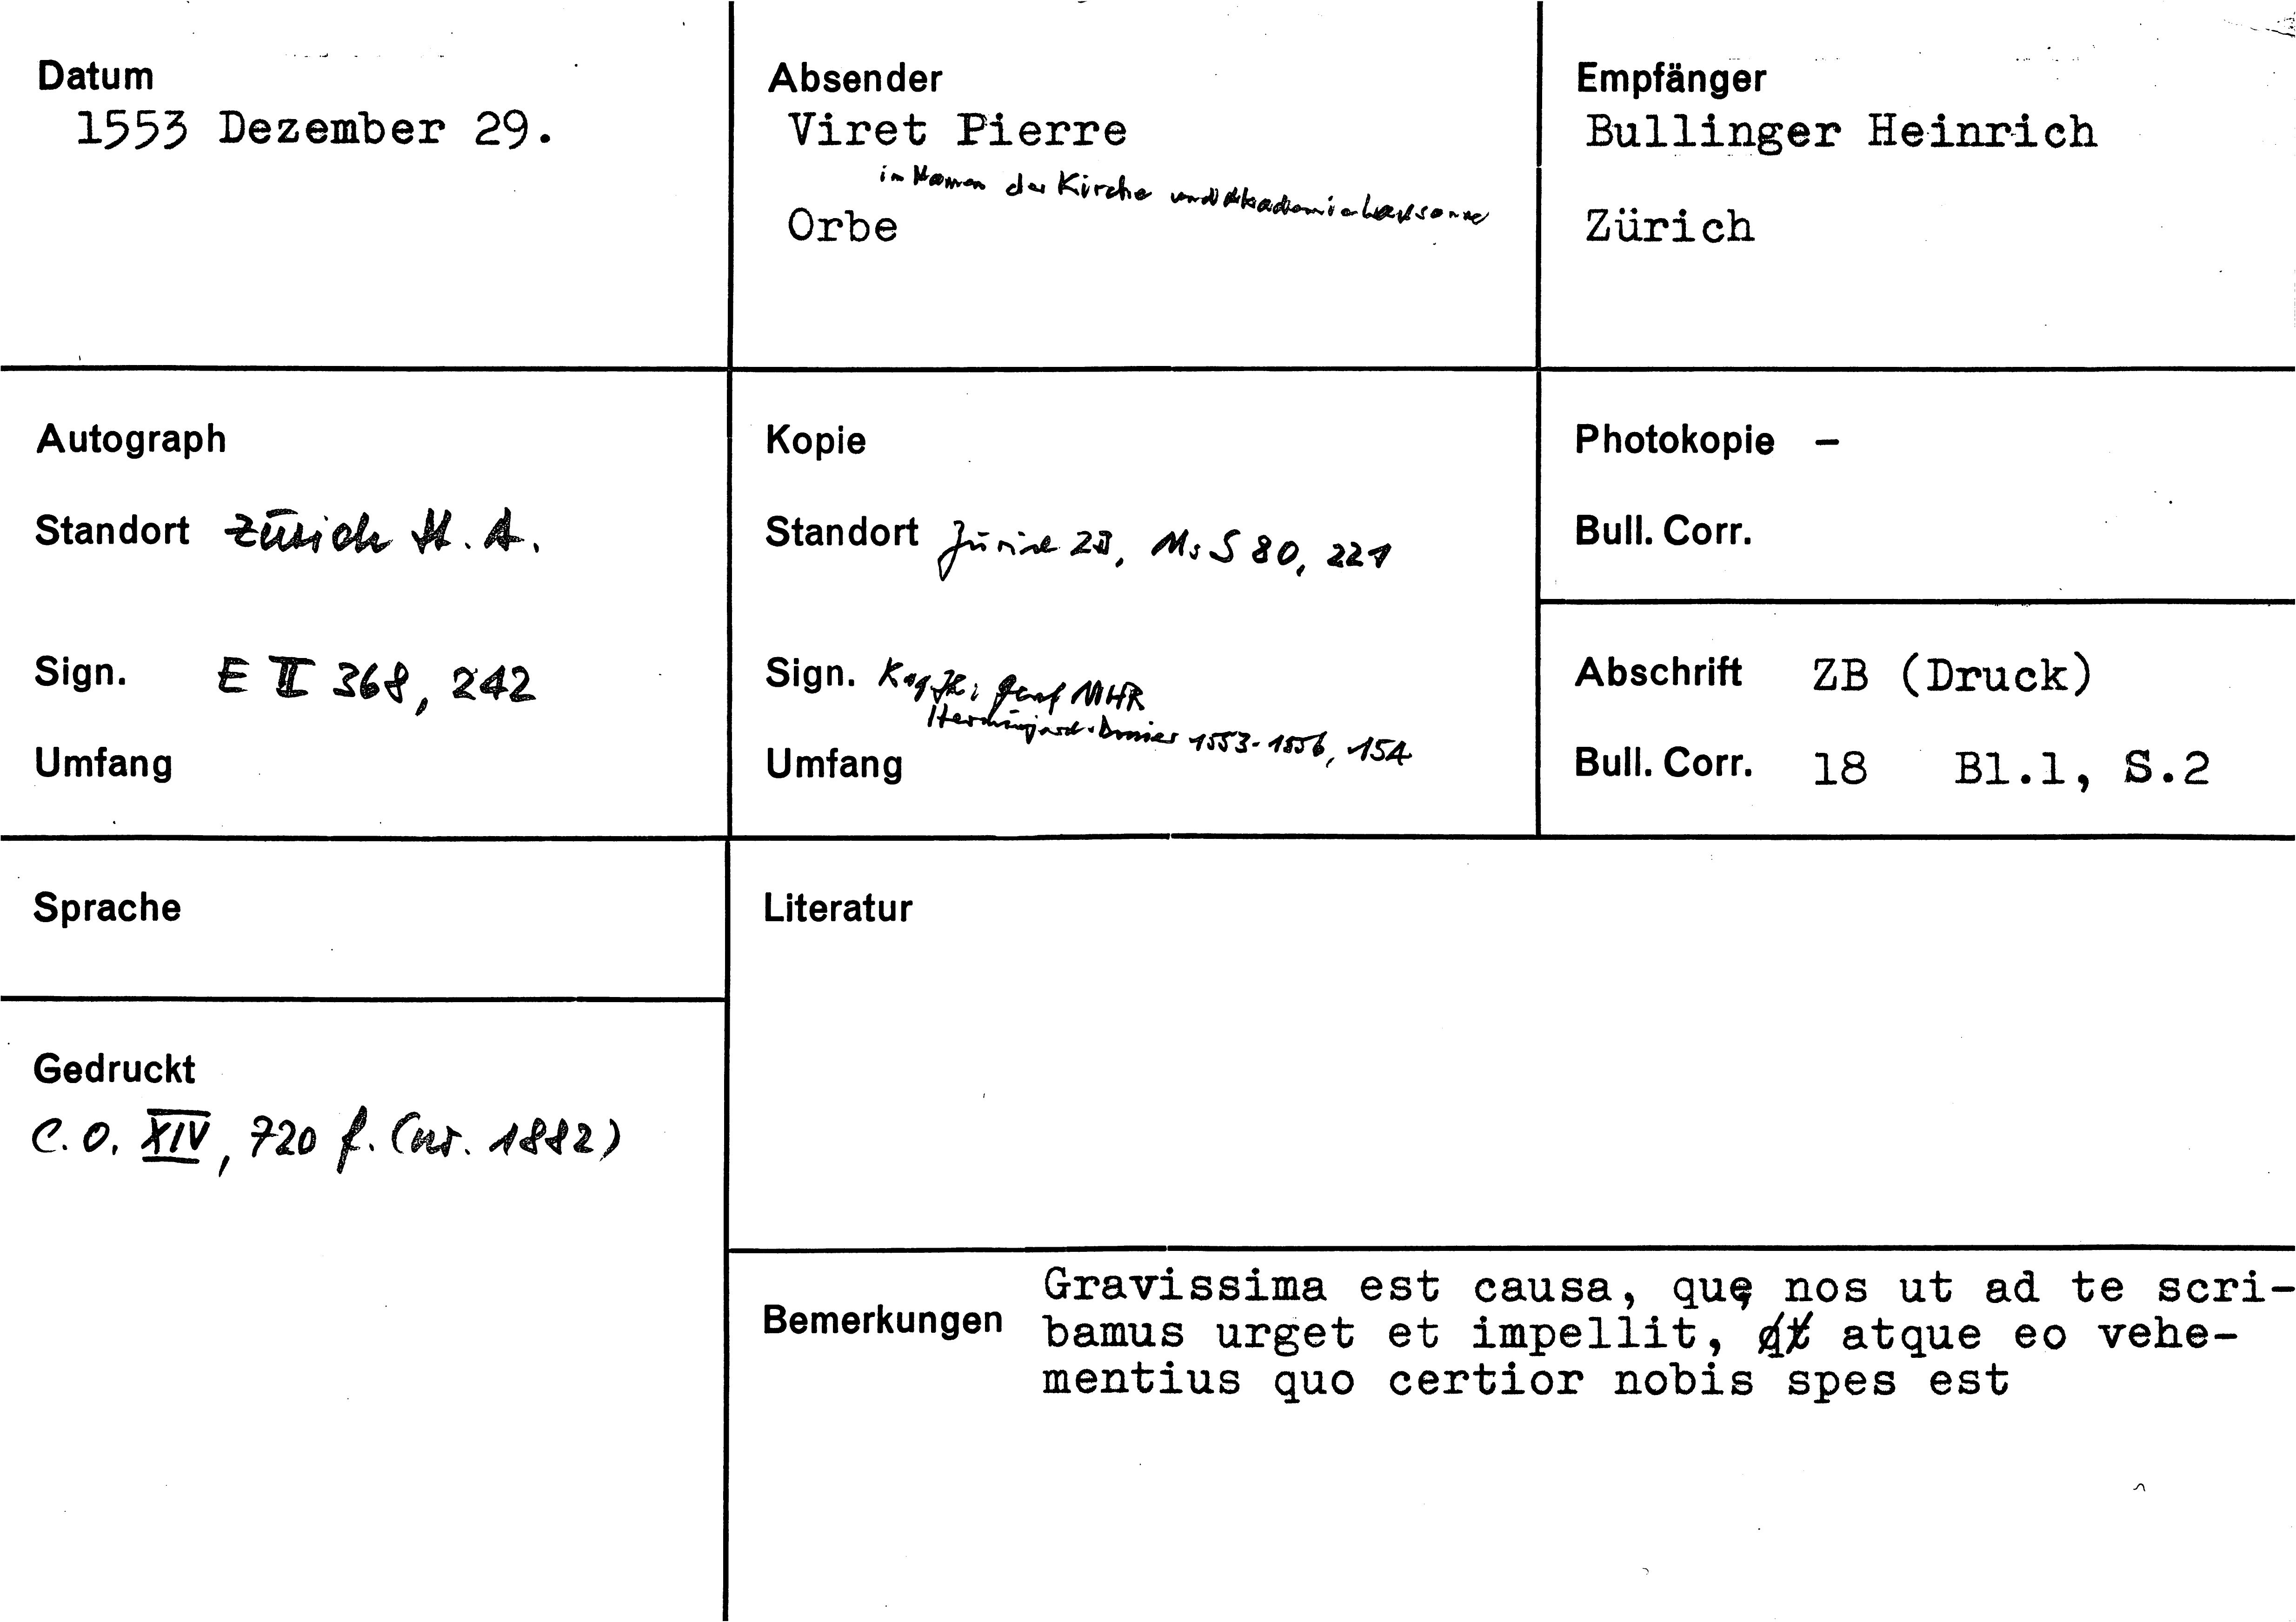 Datum
1553 Dezember 29.
Absender
Viret Pierre
im Namen der Kirche und Akademie Lausanne
Orbe
Empfänger
Bullinger Heinrich
Zürich
Autograph
Standort Zürich St. A.
Sign. E II 368, 242
Umfang
Kopie
Standort Zürich ZB, Ms S 80, 221
Sign. Genf MHR
Herminjard-Dossier 1553-1556, 154
Umfang
Photokopie –
Bull. Corr.
Abschrift ZB (Druck)
Bull. Corr. 18 Bl.1, S.2
Sprache
Gedruckt
C. O. XIV, 720 f. (nr. 1882)
Literatur
Bemerkungen
Gravissima est causa, quę nos ut ad te scri-
bamus urget et impellit, atque eo vehe-
mentius quo certior nobis spes est